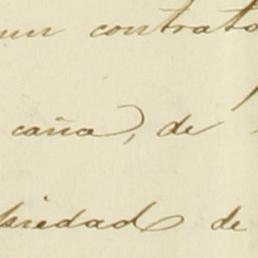 un contrato
caña, de
piedad de